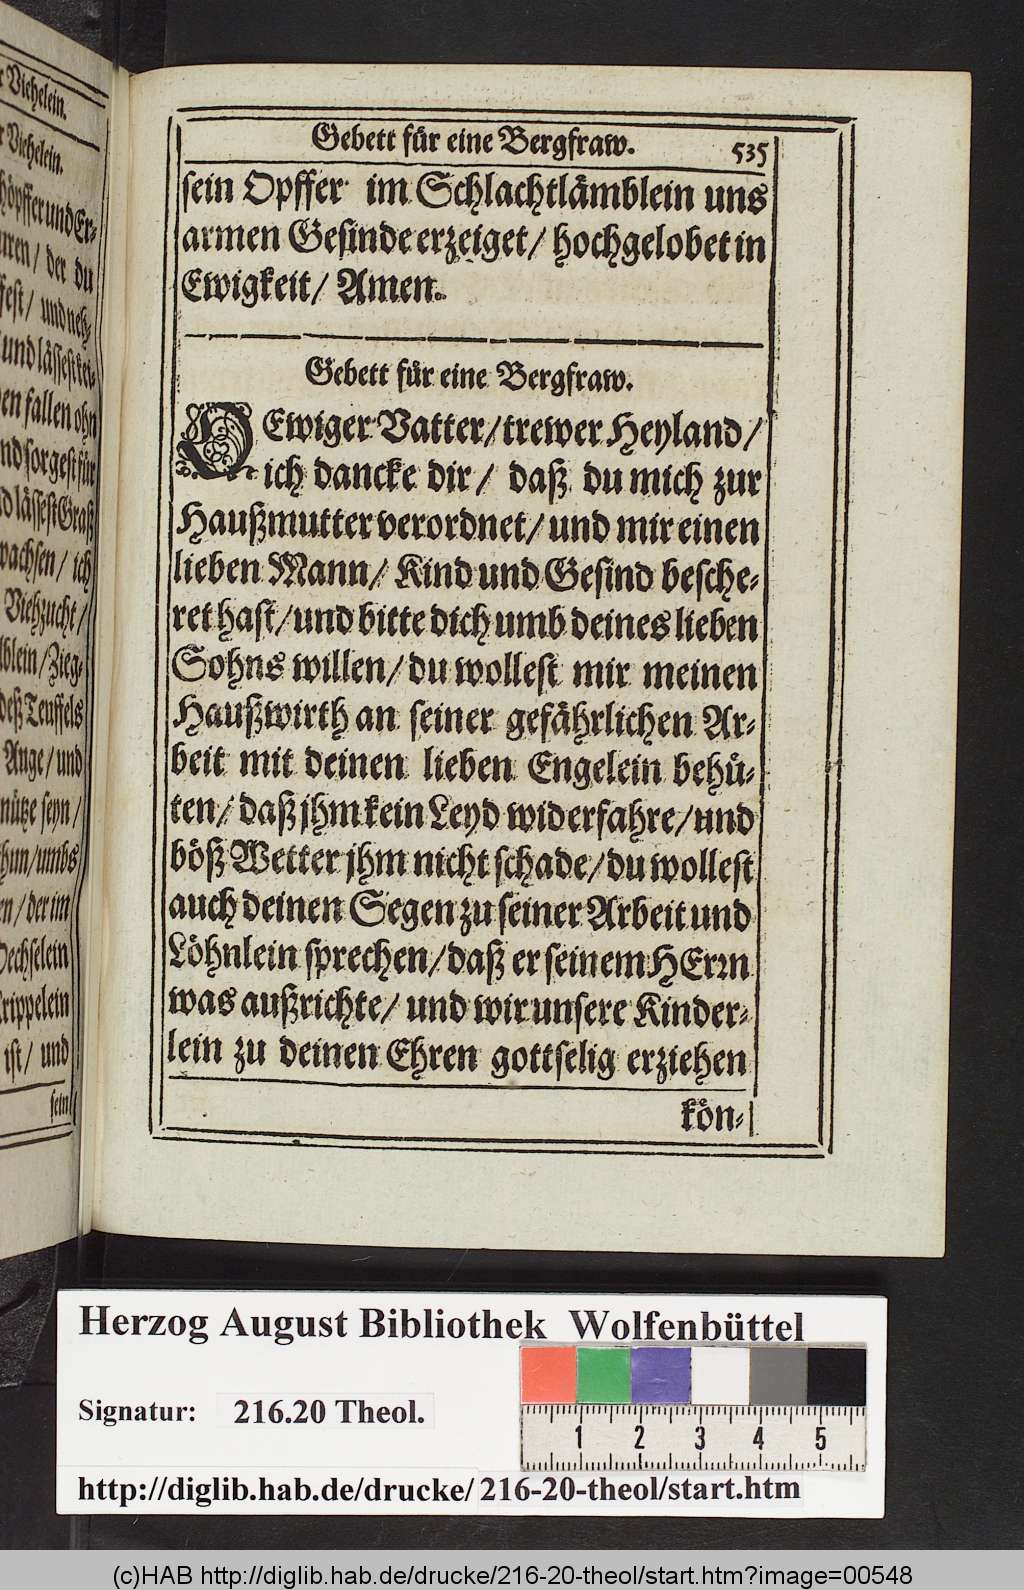 r Viehelein.
r Viehelein.
höpffer und Er-
uren / der du
fest / und neh-
und lässest kei-
en fallen ohn
nd sorgest für
d lässest Graß
wachsen / ich
Viehzucht /
lblein / Zieg-
deß Teuffels
Auge / und
nütze seyn /
hun / umbs
en / der im
Oechselein
Krippelein
ist / und
sein
Gebett für eine Bergfraw. 535
sein Opffer im Schlachtlämblein uns
armen Gesinde erzeiget / hochgelobet in
Ewigkeit / Amen.
Gebett für eine Bergfraw.
O Ewiger Vatter / trewer Heyland /
ich dancke dir / daß du mich zur
Haußmutter verordnet / und mir einen
lieben Mann / Kind und Gesind besche-
ret hast / und bitte dich umb deines lieben
Sohns willen / du wollest mir meinen
Haußwirth an seiner gefährlichen Ar-
beit mit deinen lieben Engelein behü-
ten / daß jhm kein Leyd widerfahre / und
böß Wetter jhm nicht schade / du wollest
auch deinen Segen zu seiner Arbeit und
Löhnlein sprechen / daß er seinem HErrn
was außrichte / und wir unsere Kinder-
lein zu deinen Ehren gottselig erziehen
kön-
Herzog August Bibliothek Wolfenbüttel
Signatur: 216.20 Theol.
1 2 3 4 5
http://diglib.hab.de/drucke/216-20-theol/start.htm
(c)HAB http://diglib.hab.de/drucke/216-20-theol/start.htm?image=00548